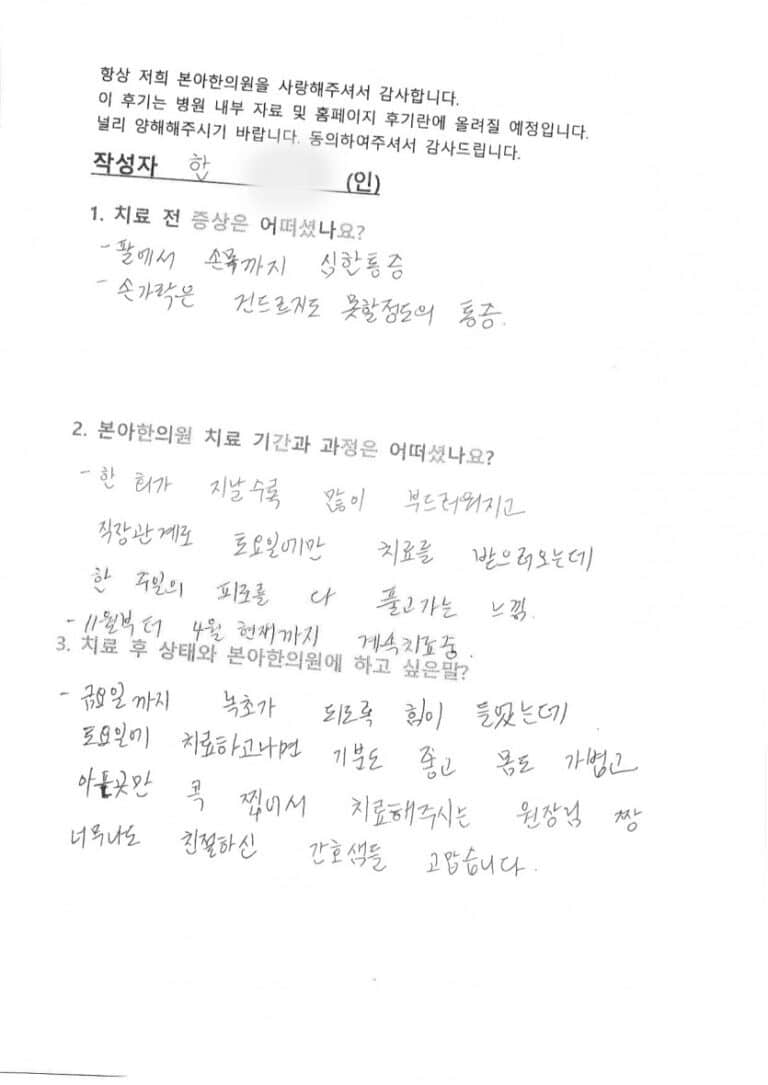 항상 저희 본아한의원을 사랑해주셔서 감사합니다.
이 후기는 병원 내부 자료 및 홈페이지 후기란에 올려질 예정입니다.
널리 양해해주시기 바랍니다. 동의하여주셔서 감사드립니다.
작성자 한 (인)
1. 치료 전 증상은 어떠셨나요?
- 팔에서 손목까지 심한통증
- 손가락은 건드르지도 못할정도의 통증.
2. 본아한의원 치료 기간과 과정은 어떠셨나요?
- 한 회가 지날수록 많이 부드러워지고
직장관계로 토요일에만 치료를 받으러오는데
한 주일의 피로를 다 풀고가는 느낌.
- 11월부터 4월 현재까지 계속치료중.
3. 치료 후 상태와 본아한의원에 하고 싶은말?
- 금요일까지 녹초가 되도록 힘이 들었는데
토요일에 치료하고나면 기분도 좋고 몸도 가볍고
아픈곳만 콕 찝어서 치료해주시는 원장님 짱
너무나도 친절하신 간호샘들 고맙습니다.